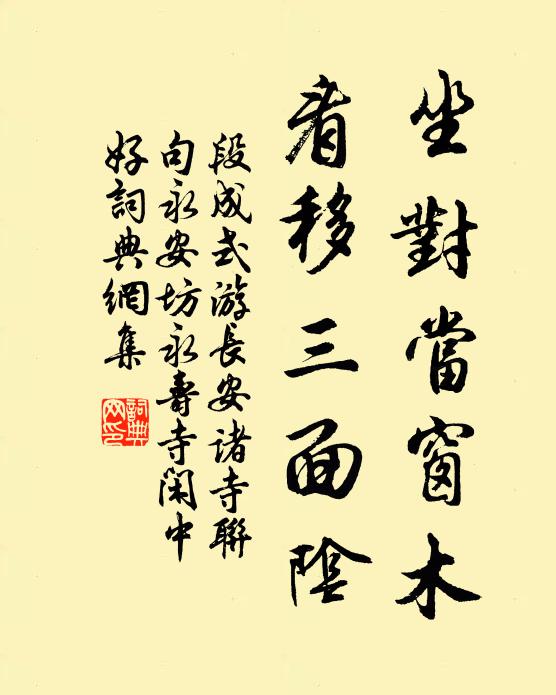 坐對當窗木
看移三面陰
段成式游長安諸寺聯
句永安坊永壽寺閑中
好詞典網集
詞典
网印